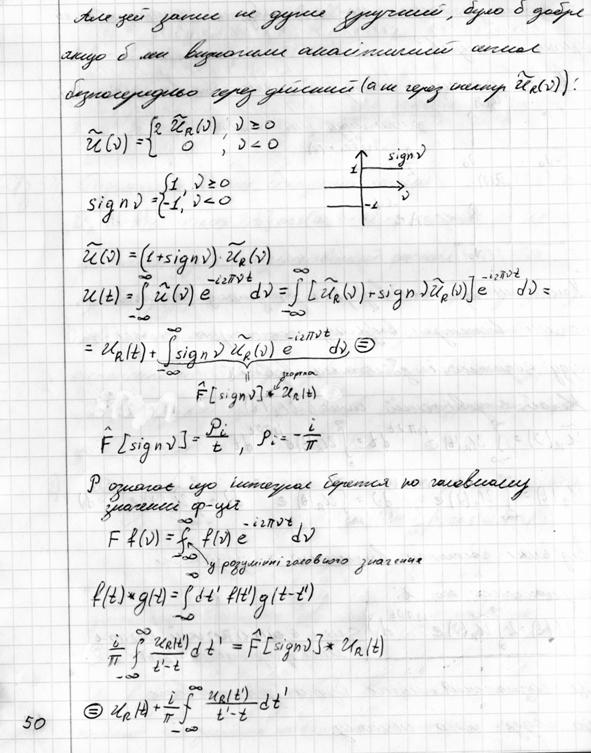 Але цей запис не дуже зручний, було б добре
якщо б ми визначили аналітичний сигнал
безпосередньо через дійсний (а не через спектр Ũ_R(ν)):
Ũ(ν) = { 2 Ũ_R(ν), ν ≥ 0
0, ν < 0
sign ν = { 1, ν ≥ 0
-1, ν < 0
sign ν
1
ν
-1
Ũ(ν) = (1 + sign ν) · Ũ_R(ν)
U(t) = ∫_{-∞}^{∞} Ũ(ν) e^{-i2πνt} dν = ∫_{-∞}^{∞} [Ũ_R(ν) + sign ν Ũ_R(ν)] e^{-i2πνt} dν =
= U_R(t) + ∫_{-∞}^{∞} sign ν Ũ_R(ν) e^{-i2πνt} dν ⊜
згортка
F̂[sign ν] * U_R(t)
F̂[sign ν] = P_i / t, P_i = -i/π
P означає що інтеграл береться по головному
значенні ф-ції
F f(ν) = ∫_{-∞}^{∞} f(ν) e^{-i2πνt} dν
у розумінні головного значення
f(t) * g(t) = ∫_{-∞}^{∞} dt' f(t') g(t-t')
i/π ∫_{-∞}^{∞} U_R(t')/(t'-t) dt' = F̂[sign ν] * U_R(t)
⊜ U_R(t) + i/π ∫_{-∞}^{∞} U_R(t')/(t'-t) dt'
50